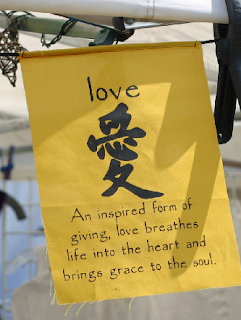 love
愛
An inspired form of
giving, love breathes
life into the heart and
brings grace to the soul.